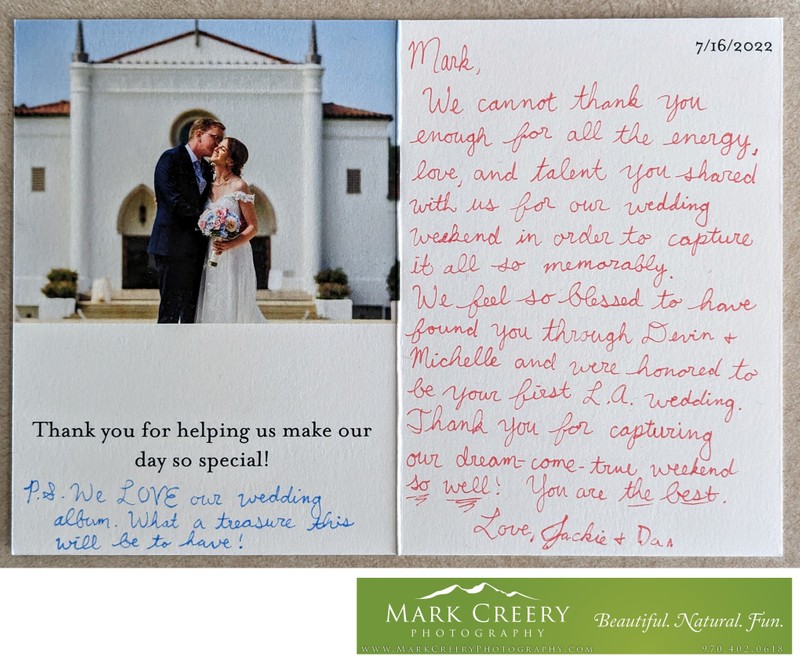 Thank you for helping us make our
day so special!
P.S. We LOVE our wedding
album. What a treasure this
will be to have!
7/16/2022
Mark,
We cannot thank you
enough for all the energy,
love, and talent you shared
with us for our wedding
weekend in order to capture
it all so memorably.
We feel so blessed to have
found you through Devin +
Michelle and were honored to
be your first L.A. wedding.
Thank you for capturing
our dream-come-true weekend
so well! You are the best.
Love, Jackie + Dan
MARK CREERY
PHOTOGRAPHY
Beautiful. Natural. Fun.
WWW.MARKCREERYPHOTOGRAPHY.COM
970.402.0618